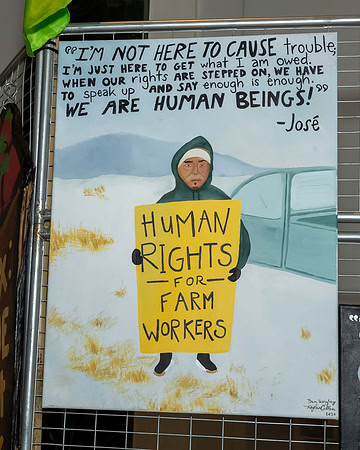 “I'M NOT HERE TO CAUSE trouble,
I'M JUST HERE, TO GET what I am owed.
WHEN OUR rights ARE STEPPED ON, WE HAVE
TO speak up AND SAY enough is enough.
WE ARE HUMAN BEINGS!”
-José
HUMAN
RIGHTS
-FOR-
FARM
WORKERS